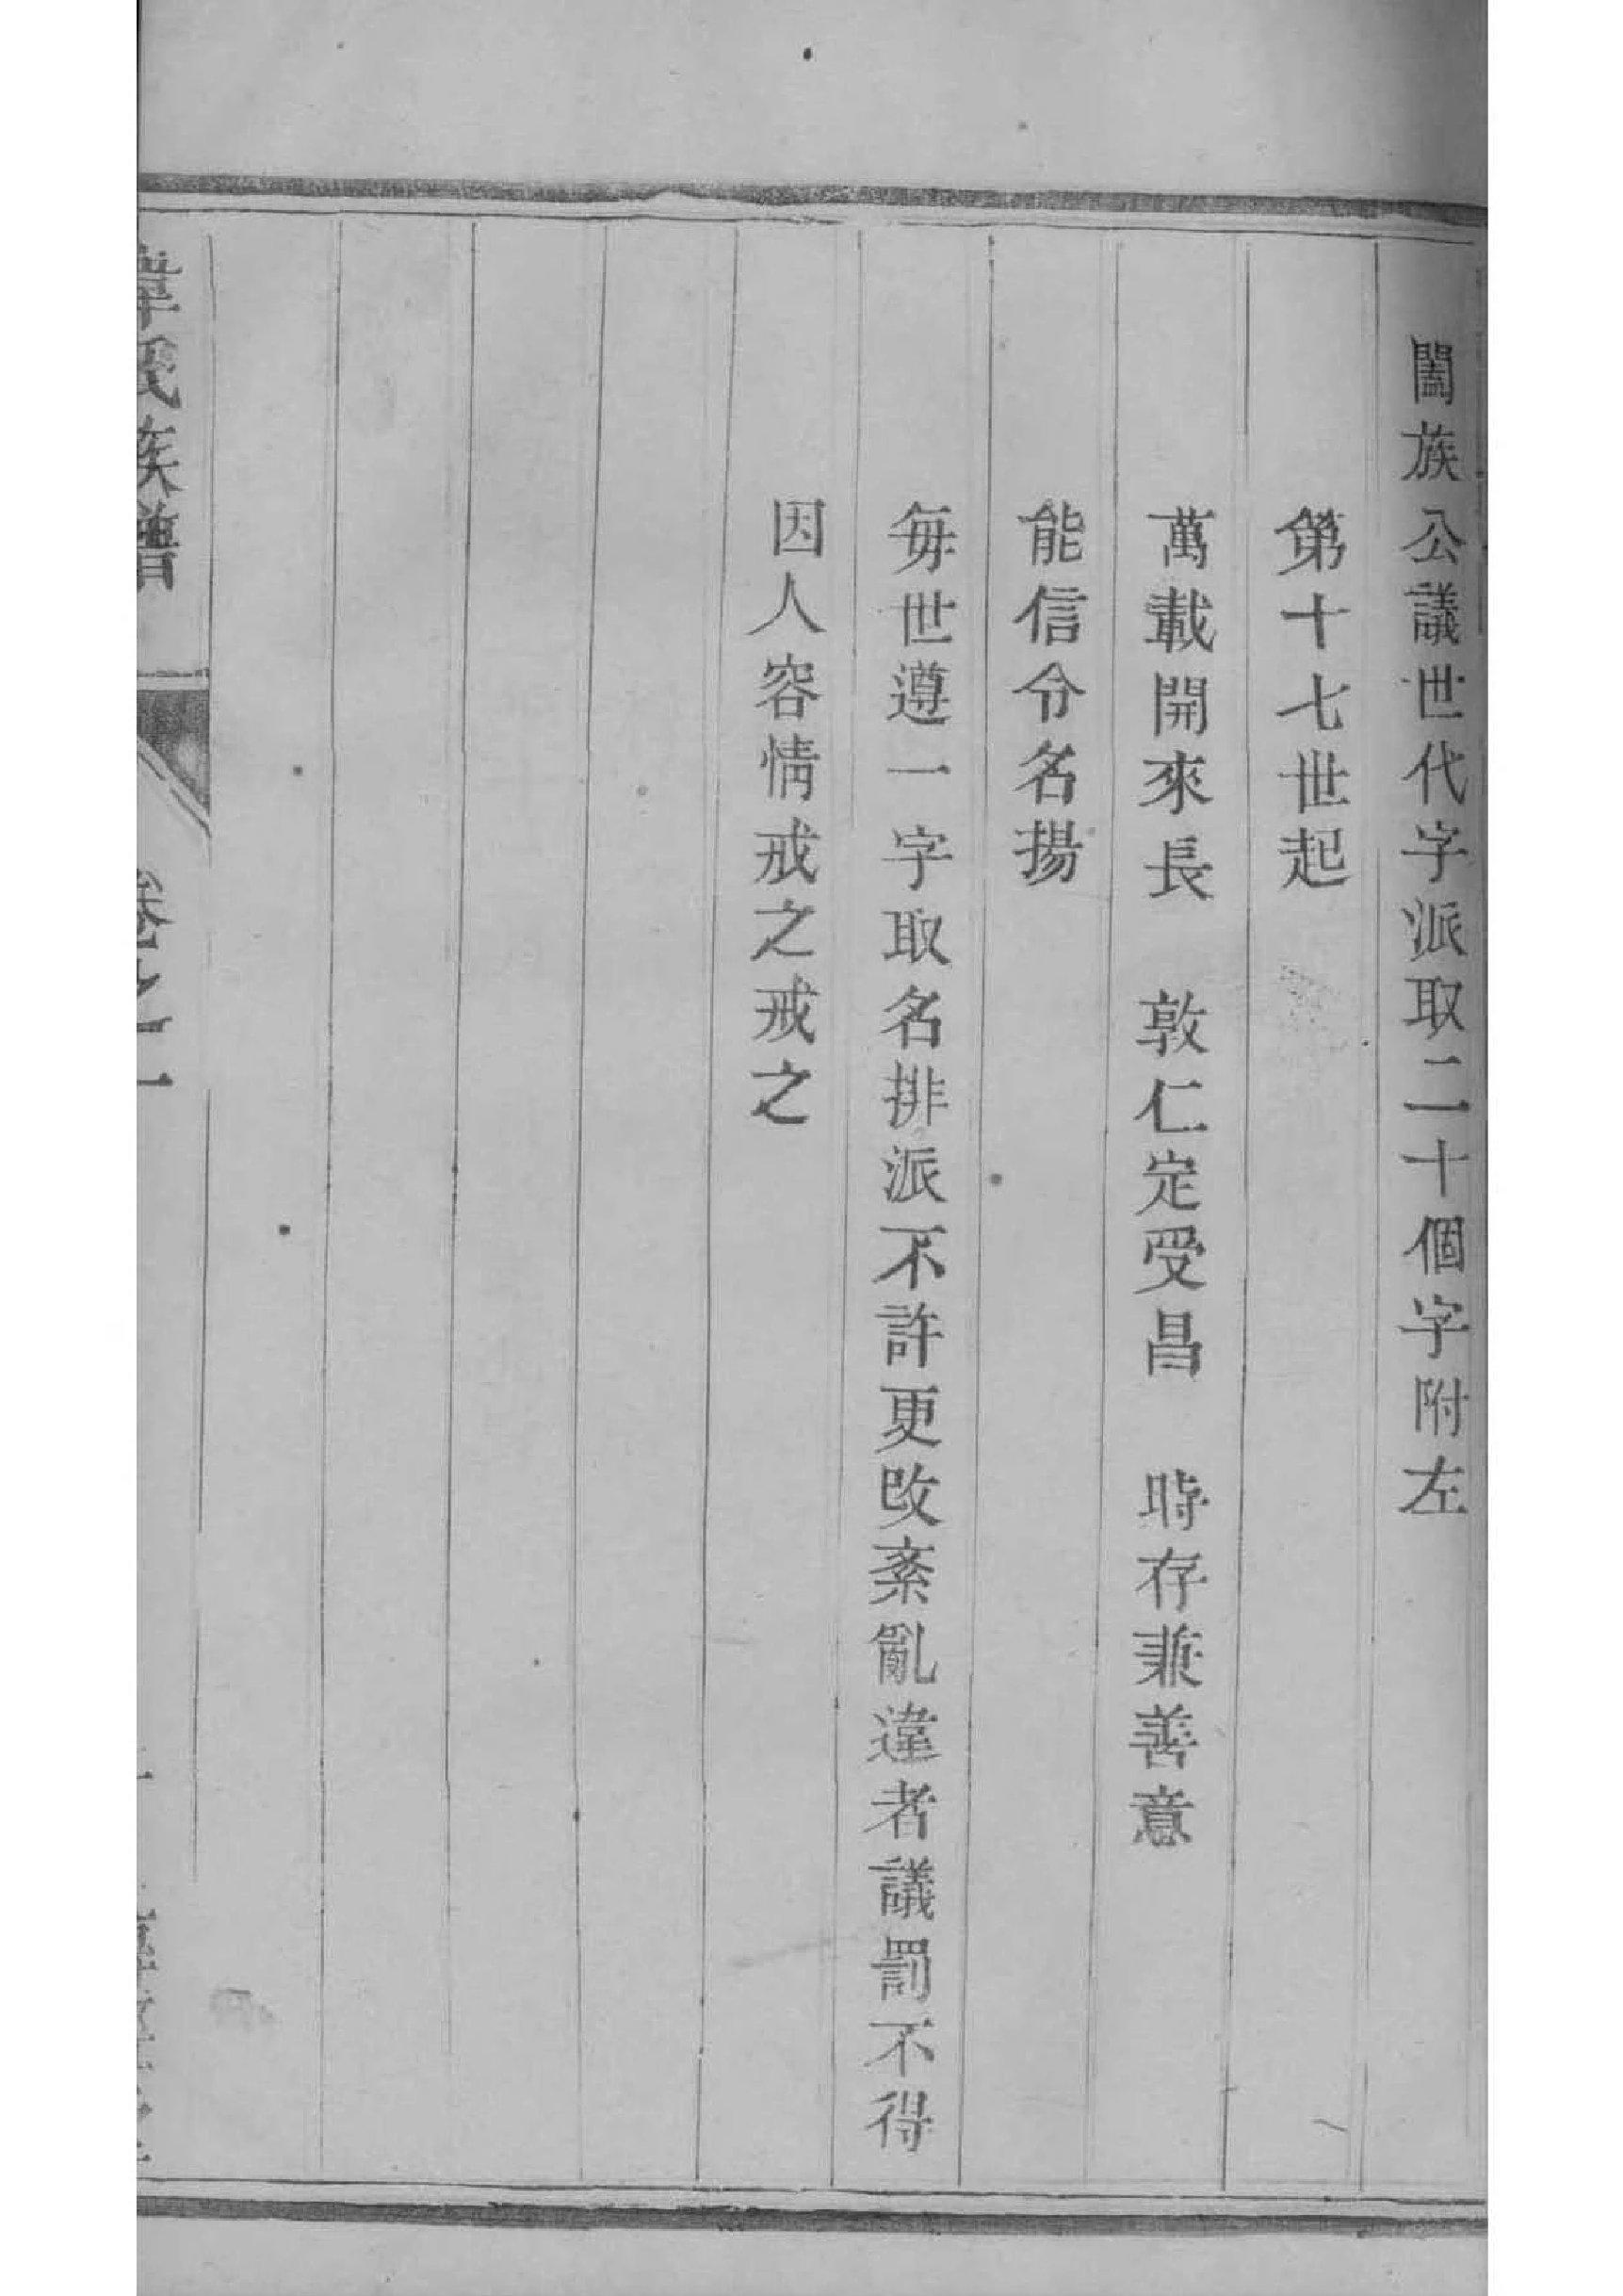 闔族公議世代字派取二十個字附左
第十七世起
萬載開來長　敦仁定受昌　時存兼善意
能信令名揚
每世遵一字取名排派不許更改紊亂違者議罰不得
因人容情戒之戒之
韋氏族譜　卷之一